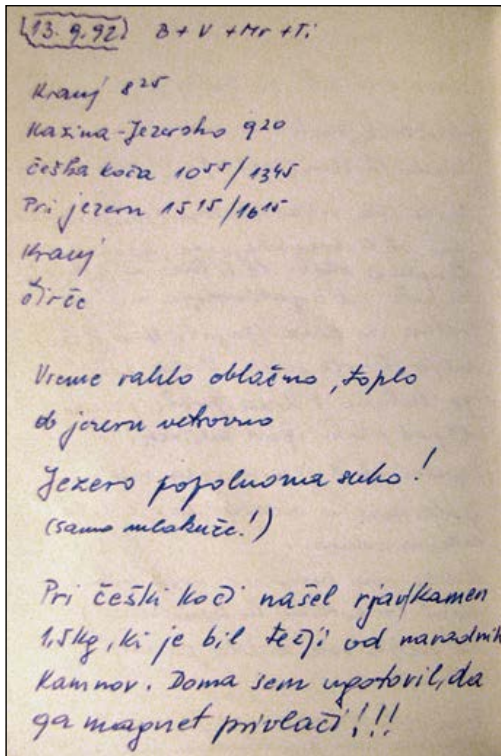 13.9.92 B + V + Mr + Ti
Kranj 8²⁵
Kazina-Jezersko 9²⁰
češka koča 10⁵⁵/13⁴⁵
Pri jezeru 15¹⁵/16¹⁵
Kranj
Čirče
Vreme rahlo oblačno, toplo
ob jezeru vetrovno
Jezero popolnoma suho!
(samo mlakuže!)
Pri češki koči našel rjav kamen
1,5kg, ki je bil težji od navadnih
kamnov. Doma sem ugotovil, da
ga magnet privlači!!!